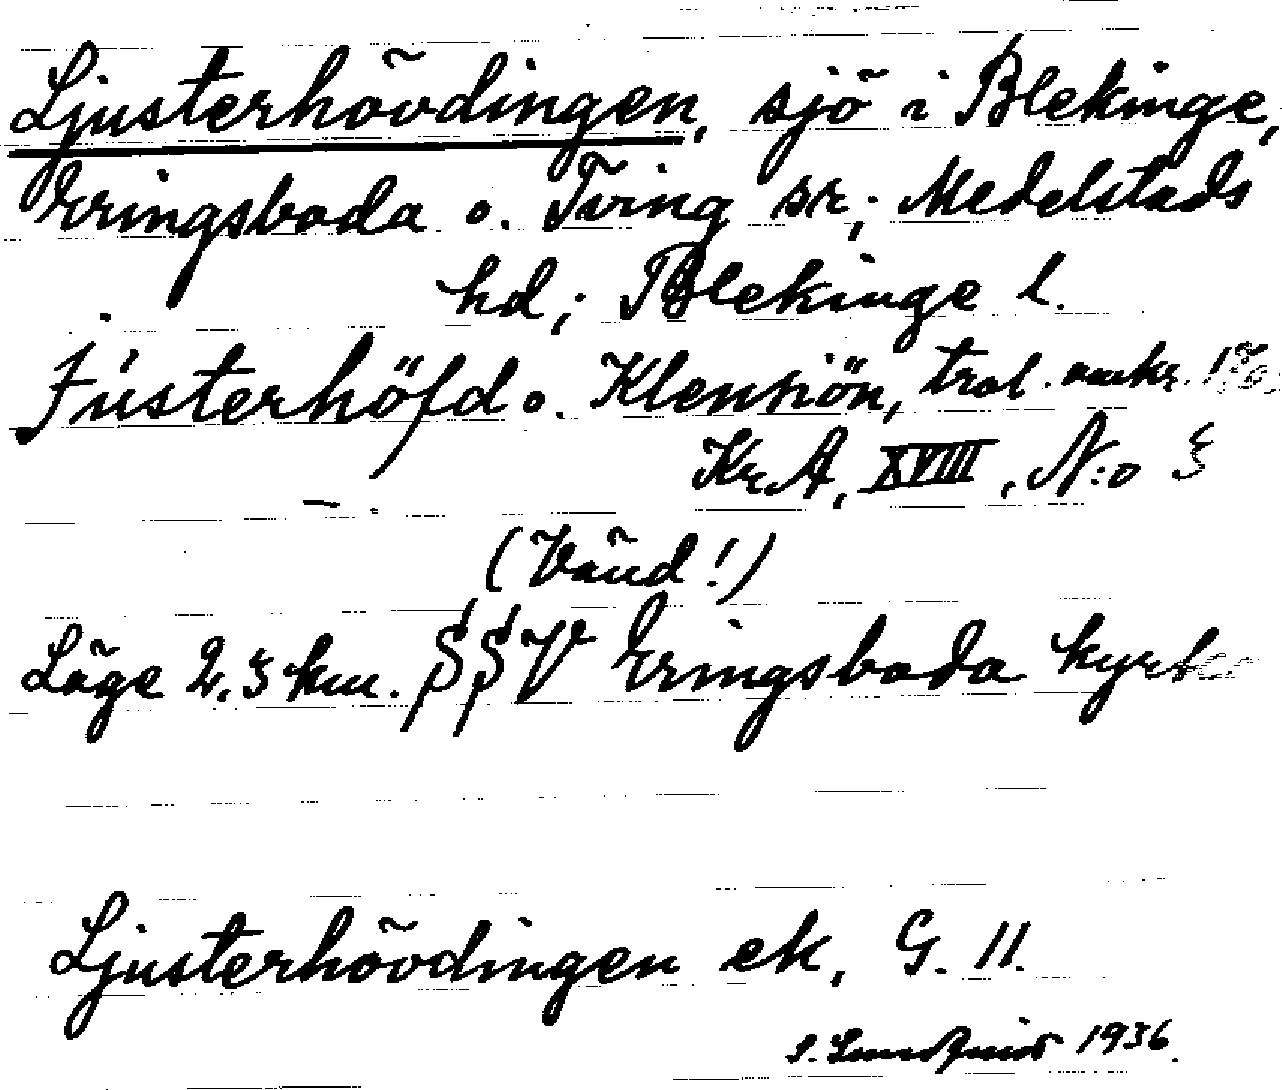 Ljusterhövdingen, sjö i Blekinge,
Eringsboda o. Tving sr; Medelstads
hd; Blekinge l.
Jüsterhöfd o. Klensiön, trol. omkr.
KrA, XVIII, N:o 5
(Vänd!)
Läge 2.5 km. SSV Eringsboda kyrka
Ljusterhövdingen ek, G. 11.
1936.